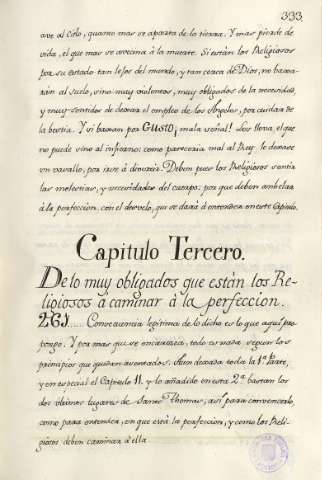 333
ave al Cielo, quanto mas se aparta de la tierra. Y mas pierde de
vida, el que mas se avecina à la muerte. Si están los Religiosos
por su estado tan lejos del mundo, y tan cerca de Dios, no baxa-
rán al suelo, sino muy violentos, muy obligados de la necesidad,
y muy sentidos de dexar el empleo de los Angeles, por cuidar de
la bestia. Y si baxan por GUSTO, mala señal! dos llena, el que
no puede sino al infierno: como pareceria mal al Rey le dexase
un vasallo, por irse à divertir. Deben pues los Religiosos sentir
las molestias, y necesidades del cuerpo; por que deben anhelar
à la perfeccion, con el desvelo, que se dará à entender en este Capitulo.
Capitulo Tercero.
De lo muy obligados que están los Re-
ligiosos à caminar à la perfeccion.
261..... Consecuencia legitima de lo dicho es lo que aqui pro-
pongo. Y por mas que se encarezca, todo es nada segun los
principios que quedan assentados. Aun dexada toda la 1ª Parte,
y en especial el Capitulo 11. y lo añadido en esta 2ª bastan los
dos ultimos lugares de Santo Thomas; asi para convencerlo,
como para entender, en que está la perfeccion, y como los Reli-
giosos deben caminar à ella.